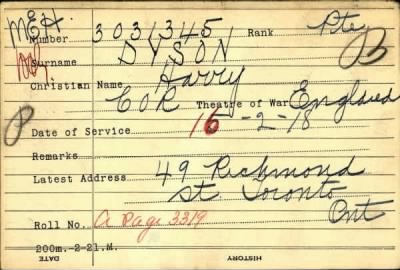 M.E.H.
Number 3031345 Rank Pte
Surname DYSON B
Christian Name Harry
COR Theatre of War England
Date of Service 16-2-18
Remarks
Latest Address 49 Richmond
St Toronto
Ont
Roll No. A Page 3319
200m.-2-21.M.
DATE HISTORY